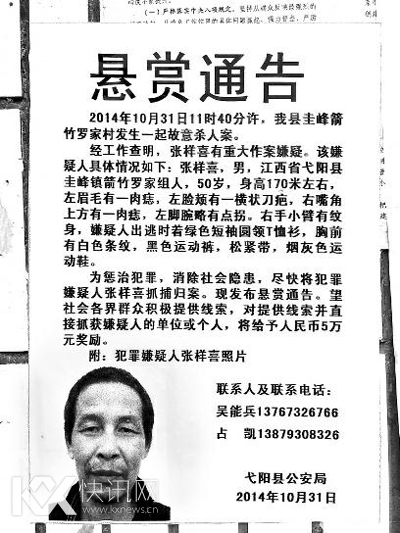 (一)严格落实中央八项规定，坚持从
悬赏通告
2014年10月31日11时40分许，我县圭峰箭
竹罗家村发生一起故意杀人案。
经工作查明，张样喜有重大作案嫌疑。该嫌
疑人具体情况如下：张样喜，男，江西省弋阳县
圭峰镇箭竹罗家组人，50岁，身高170米左右，
左眉毛有一肉痣，左脸颊有一横状刀疤，右嘴角
上方有一肉痣，左脚腕略有点拐。右手小臂有纹
身，嫌疑人出逃时若绿色短袖圆领T恤衫，胸前
有白色条纹，黑色运动裤，松紧带，烟灰色运
动鞋。
为惩治犯罪，消除社会隐患，尽快将犯罪
嫌疑人张样喜抓捕归案。现发布悬赏通告。望
社会各界群众积极提供线索，对提供线索并直
接抓获嫌疑人的单位或个人，将给予人民币5万
元奖励。
附：犯罪嫌疑人张样喜照片
联系人及联系电话：
吴能兵13767326766
占　凯13879308326
弋阳县公安局
2014年10月31日
KX快讯网
www.kxnews.cn